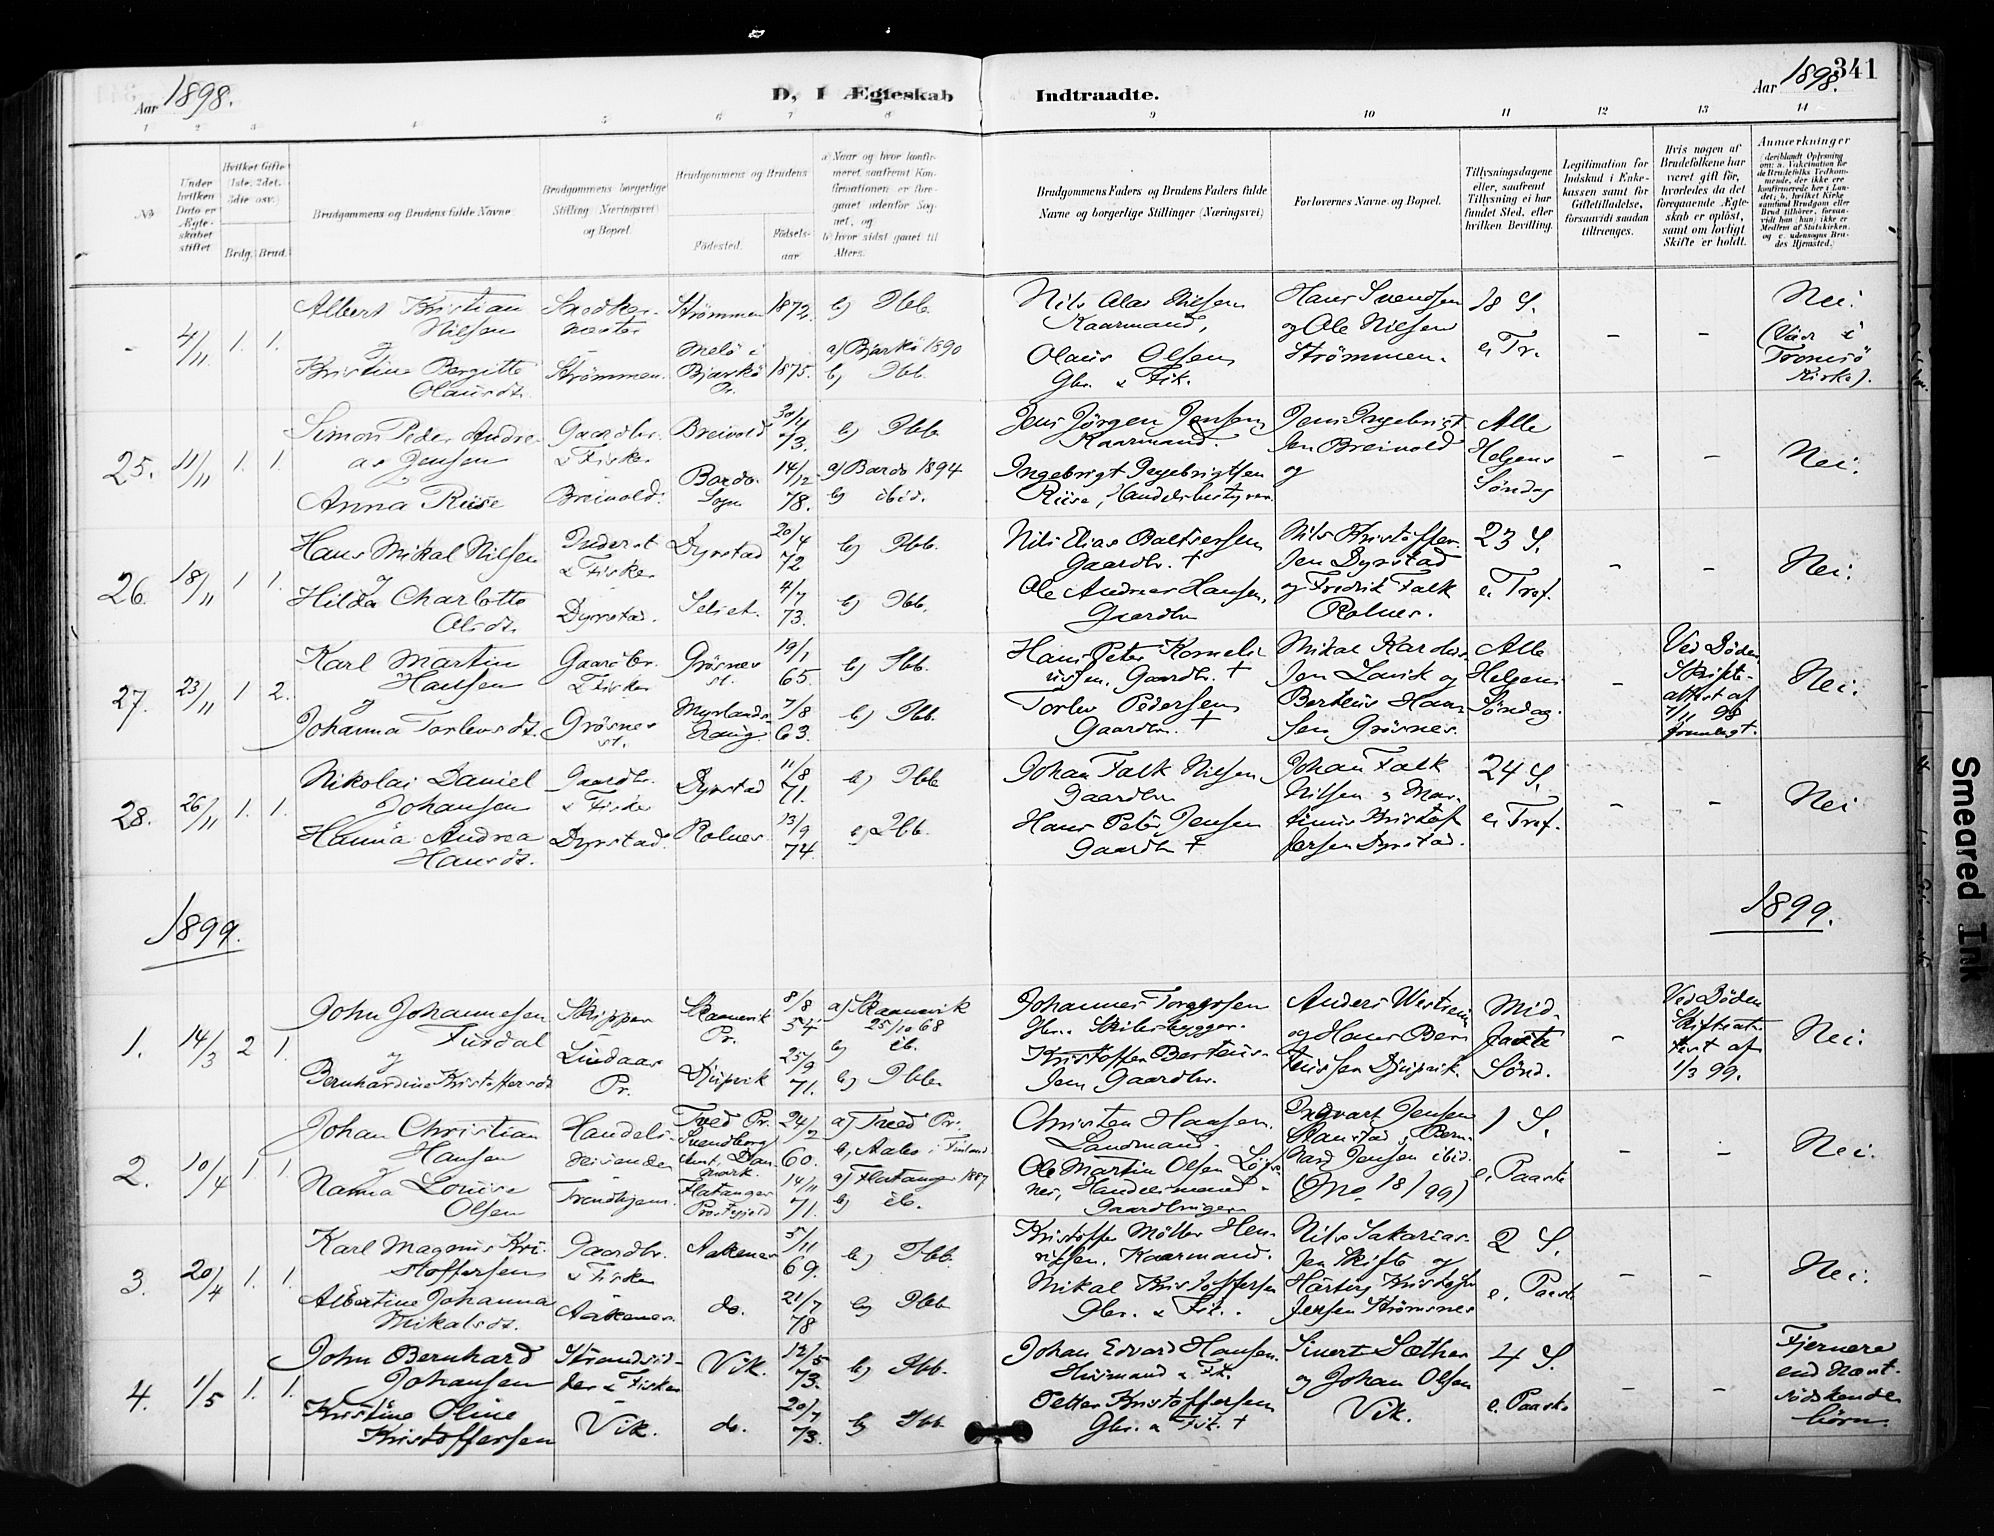 Aar 1898.
D, I Ægteskab
Indtraadte.
Aar 1898.
341
1 2 3 4 5 6 7 8 9 10 11 12 13 14
No
Under hvilken Dato er Ægteskabet stiftet
Hvilket Gifte (1ste, 2det, 3die osv.)
Brdg. Brud.
Brudgommens og Brudens fulde Navne
Brudgommens borgerlige Stilling (Næringsvei) og Bopæl.
Brudgommens og Brudens
Fødested.
Fødsels-aar
a) Naar og hvor konfirmeret, saafremt Konfirmationen er foregaaet udenfor Sognet, og
b) hvor sidst gaaet til Alters.
Brudgommens Faders og Brudens Faders fulde Navne og borgerlige Stillinger (Næringsvei)
Forlovernes Navne og Bopæl.
Tillysningsdagene eller, saafremt Tillysning ei har fundet Sted, efter hvilken Bevilling.
Legitimation for Indskud i Enkekassen samt for Giftetilladelse, forsaavidt saadan tiltrænges.
Hvis nogen af Brudefolkene har været gift før, hvorledes da det foregaaende Ægteskab er opløst, samt om lovligt Skifte er holdt.
Anmærkninger
- 4/11 1. 1.
Albert Kristian
Nilsen
og
Kristine Bergitte
Olausdt.
Snedker-
mester
Strømmen.
Strømmen 1872.
Melö i
Bjarkö
Pr. 1875.
b) Ibb.
a) Bjarkö 1890
b) Ibb.
Nils Olai Nilsen
Kaarmand,
Olaus Olsen,
Gbr. & Fisk.
Hans Svendsen
og Ole Nilsen
Strømmen.
18 S.
e. Tr.
- -
Nei.
(Viet i
Tromsö
Kirke).
25. 11/11 1. 1.
Simon Peder Andre-
as Jensen
og
Anna Riise
Gaardbr.
& Fisker
Breivold.
Breivold
Bardo
Sogn
14/12
78.
b) Ibb.
a) Bardo 1894
b) ibid.
Jens Jörgen Jensen,
Kaarmand.
Ingebrigt Ingebrigtsen
Riise, Handelsbestyrer.
Jens Ingebrigt-
sen Breivold
og
Alle
Helgens
Söndag
- -
Nei.
26. 18/11 1 1.
Hans Mikal Nilsen
og
Hilda Charlotte
Olsdt.
Inderst
& Fisker
Dyrstad.
Dyrstad
Selset.
20/4
72
4/7
73.
b) Ibb.
b) Ibb.
Nils Elias Baltsersen
Gaardbr. †
Ole Andreas Hansen,
Gaardbr.
Nils Kristoffer-
sen Dyrstad
og Fredrik Falk
Rolnes.
23 S.
e. Tref.
- -
Nei.
27. 23/11 1 2.
Karl Martin
Hansen
og
Johanna Torlevsdt.
Gaardbr.
& Fisker
Grösnes
st.
Grösnes
st.
Myrlands-
haug.
19/1
65.
7/8
63.
b) Ibb.
b) Ibb.
Hans Peter Korneli-
ussen. Gaardbr. †
Torlev Pedersen,
Gaardbr. †
Mikal Karolius-
sen Lavik og
Berteus Han-
sen Grösnes.
Alle
Helgens
Söndag.
-
Ved Döden
Skifte-
attest af
7/11 98
fremlagt.
Nei.
28. 26/11 1. 1.
Nikolai Daniel
Johansen
Hanna Andrea
Hansdt.
Gaardbr.
& Fisker
Dyrstad.
Dyrstad
Rolnes.
11/8
71.
13/9
74.
b) Ibb
b) Ibb.
Johan Falk Nilsen
Gaardbr.
Hans Peter Jensen
Gaardbr †
Johan Falk
Nilsen og Mar-
tinus Kristof-
fersen Dyrstad.
24 S.
e. Tref.
- -
Nei
1899.
1899.
1. 14/3 2 1.
John Johannesen
Fusdal
og
Bernhardine Kristoffersdt
Skipper
Lindaas
Pr.
Skaanevik
Pr.
Djupvik
8/8
54
25/9
71.
a) Skaanevik
25/10 68
b) ib.
b) Ibb.
Johannes Torgersen
Gbr. Skibsbygger.
Kristoffer Berteus-
sen Gaardbr.
Anders Westrein
og Hans Bern-
teussen Djupvik.
Mid-
faste
Sönd.
-
Ved Döden
Skifteat-
test af
1/3 99.
Nei.
2. 10/4 1. 1.
Johan Christian
Hansen
og
Nanna Louise
Olsen
Handels-
reisende
Trondhjem.
Tved Pr.
Svendborg
Amt, Dan-
mark.
Flatanger
Præstegjeld
24/2
60.
14/11
71.
a) Tved Pr.
b) Aabo i Finland
a) Flatanger 1887
b) ib.
Christen Hansen.
Landmand.
Ole Martin Olsen Löv-
nes, Handelsmand
Gaardbruger
Ingvart Jensen
Stanstad, Bern-
hard Jensen ibid.
(No 18/99)
1 S.
e. Paaske
- -
Nei.
3. 20/4 1. 1.
Karl Magnus Kri-
stoffersen
Albertine Johanna
Mikalsdt.
Gaardbr.
& Fisker
Aakenes.
Aakenes
do.
5/11
69.
21/7
78
b) Ibb.
b) Ibb.
Kristoffer Möller Hen-
riksen. Kaarmand.
Mikal Kristoffersen
Gbr. & Fisk.
Nils Sakarias-
sen Skift og
Härtvig Kristof-
fersen Strömsnes
2 S.
e. Paaske
- -
Nei.
4. 1/5 1. 1.
John Bernhard
Johansen
Kristine Oline
Kristoffersen
Strandsid-
der & Fisker
Vik.
Vik.
do.
12/5
73.
20/7
73.
b) Ibb.
b) Ibb
Johan Edvard Hansen.
Huusmand & Fsk.
Petter Kristoffersen
Gbr. & Fisk. †
Sivert Sæther
og Johan Olsen
Vik.
4 S.
e. Paaske
- -
Fjernere
end Næst-
södskende-
börn.
Smeared Ink